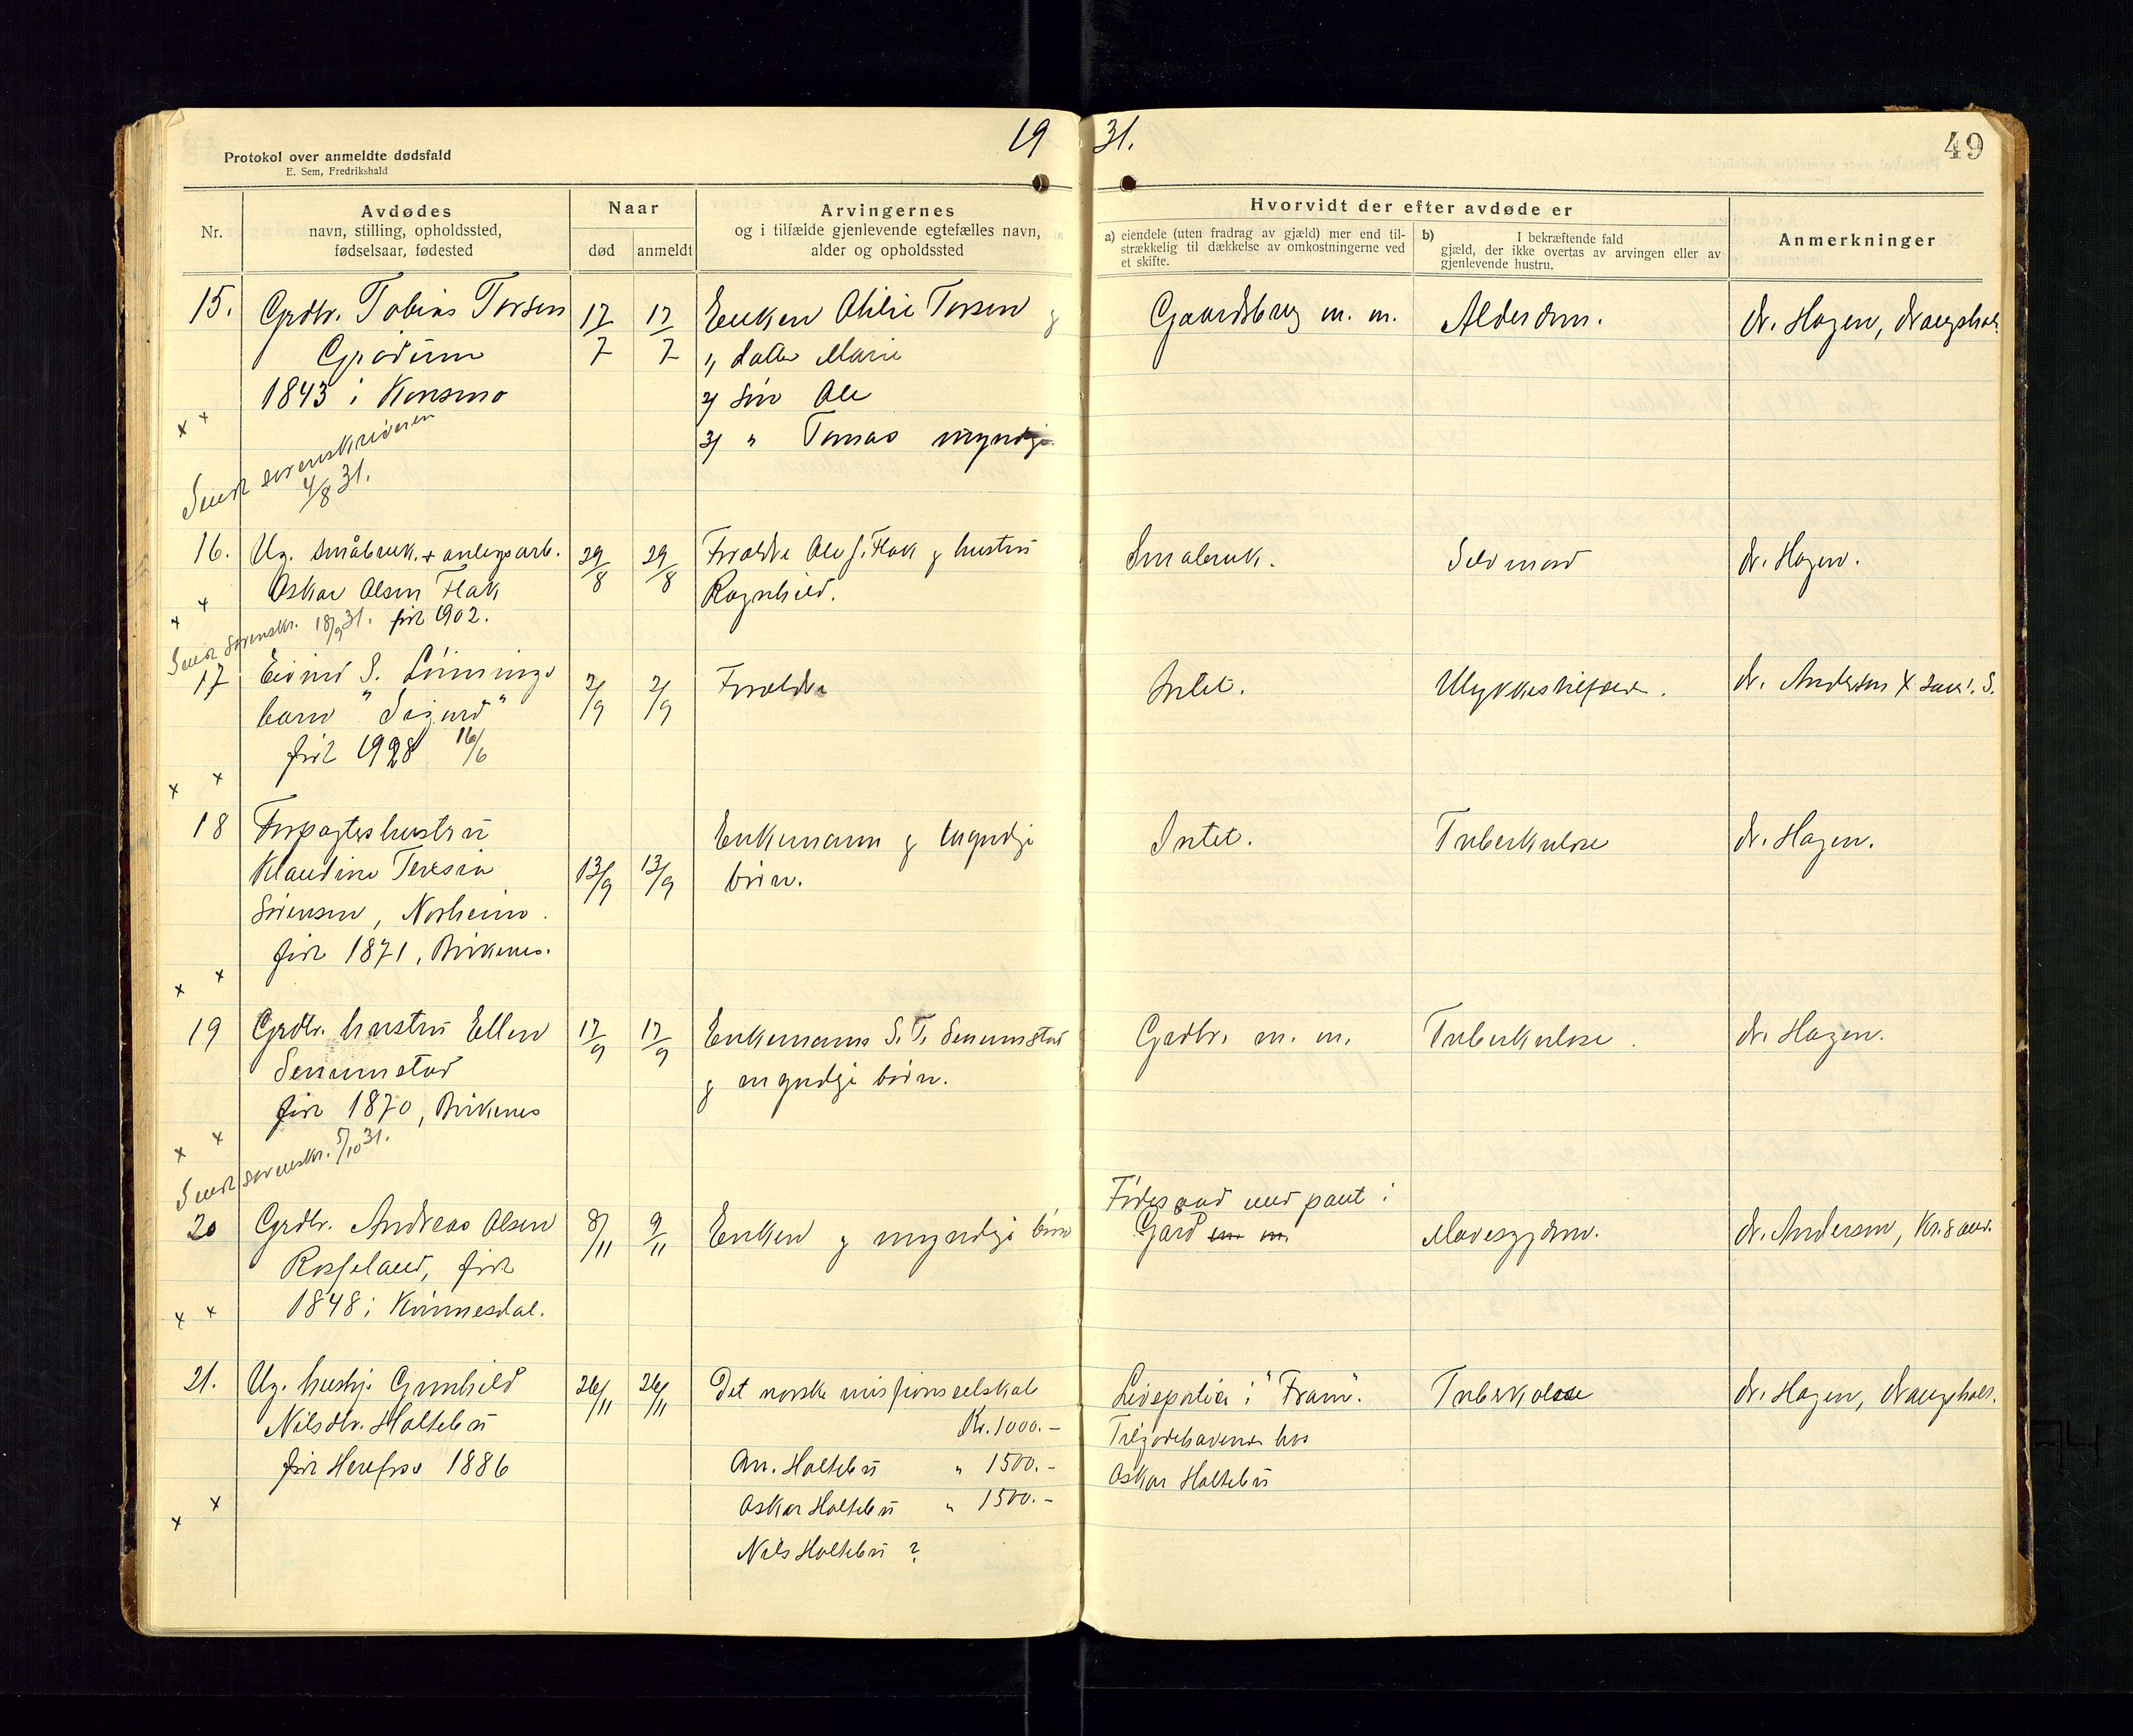 Protokol over anmeldte dødsfald
E. Sem, Fredrikshald
19 31.
49
Nr.
Avdødes
navn, stilling, opholdssted,
fødselsaar, fødested
Naar
død
anmeldt
Arvingernes
og i tilfælde gjenlevende egtefælles navn,
alder og opholdssted
Hvorvidt der efter avdøde er
a) eiendele (uten fradrag av gjæld) mer end til-
strækkelig til dækkelse av omkostningerne ved
et skifte.
b) I bekræftende fald
gjæld, der ikke overtas av arvingen eller av
gjenlevende hustru.
Anmerkninger
15. Grdbr. Tobias Torsen 17/7 17/7 Enken Otilie Torsen og Gaardsbrug m. m. Alderdom. dr. Hagen,
1) datter Marie
1843 i Konsmo 2) Søn Ole
x x 3) " Tomas myndige
Sendt sorenskriveren
4/8 31.
16. Ug. småbruk. + anlegsarb. 29/8 29/8 Forældre Ole J. Flak og hustru Småbruk. Selvmord dr. Hagen.
Oskar Olsen Flak Ragnhild.
x x
Sendt sorenskr. 18/9 31. født 1902.
17 Eivind S. 2/9 2/9 Forældre Intet. Ulykkestilfælde. dr. Andersen
barn "Sigurd"
født 1928 16/6
x x
18 Forpagterhustru Enkemann og myndige Intet. Tuberkulose dr. Hagen.
Klaudine Teresia 13/9 13/9 børn.
Sørensen, Norheim.
født 1871, Birkenes.
x x
19 Grdbr. hustru Ellen 17/9 17/9 Enkemann S. T. Senumstad Grdbr. m. m. Tuberkulose. dr. Hagen.
Senumstad og myndige børn.
født 1870, Birkenes
x x
Sendt sorenskr. 5/10 31.
Føderaad med pant i
20 Grdbr. Andreas Olsen 8/11 9/11 Enken og myndige børn Gård m. m. Mavesygdom. dr. Andersen, Kr.sand.
Rosseland, født
1848 i Kvinnesdal.
x x
21. Ug. hushj. Gunhild 26/11 26/11 Det norske missionsselskab Livspolice i "Fram". Tuberkulose dr. Hagen,
Nilsdtr. Holtebu Kr. 1000.- Tilgodehavende hos
født Herefoss 1886 An. Holtebu " 1500.- Oskar Holtebu
x x Oskar Holtebu " 1500.-
Nils Holtebu ?